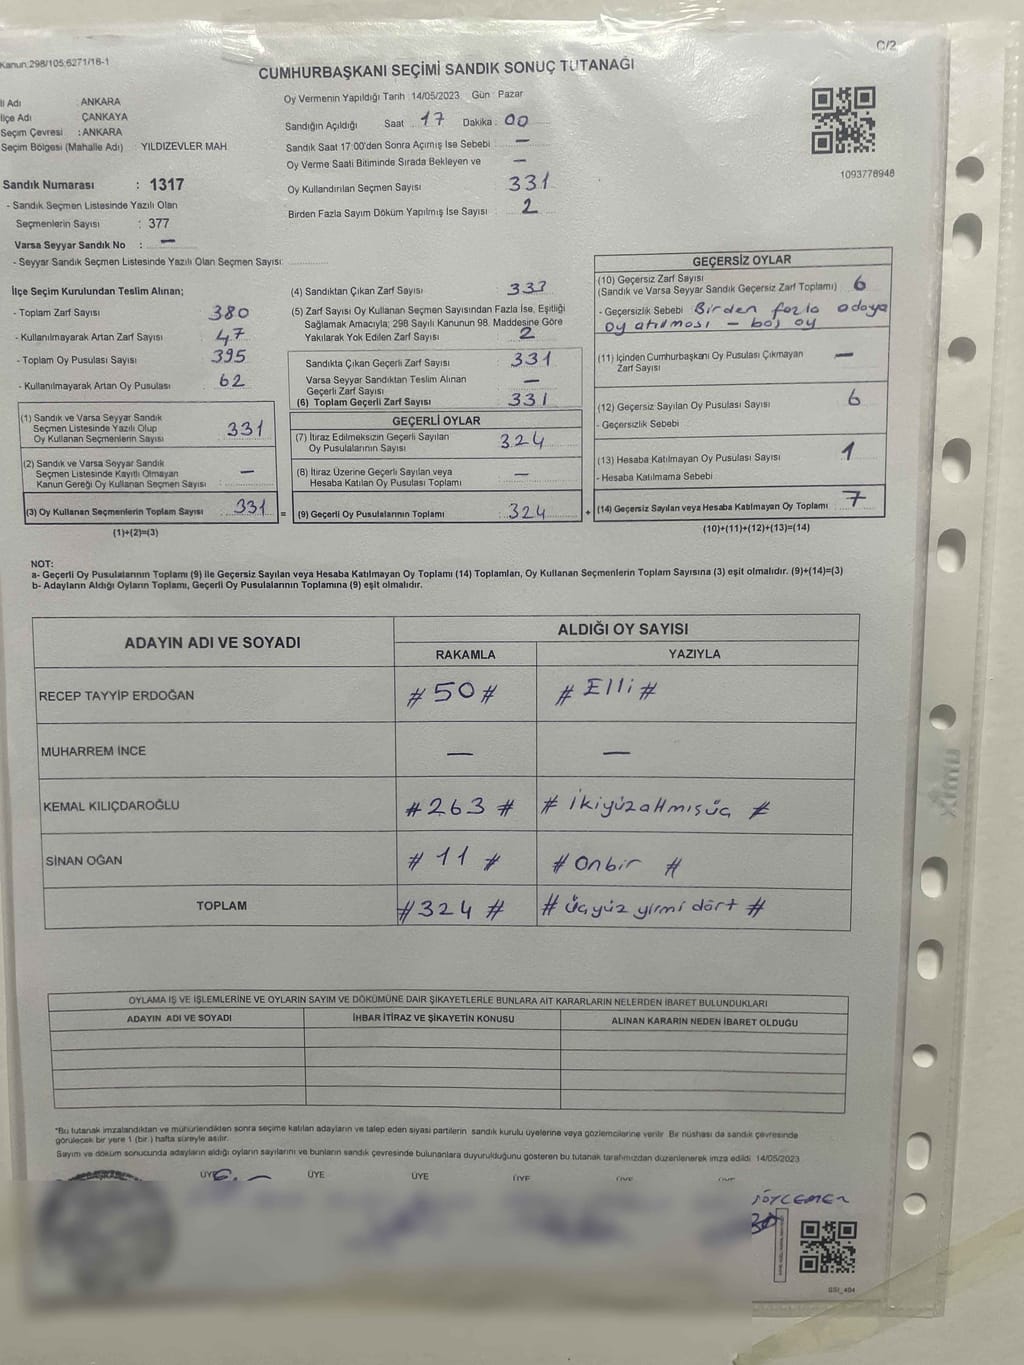 C/2
Kanun:298/105;6271/18-1
CUMHURBAŞKANI SEÇİMİ SANDIK SONUÇ TUTANAĞI
İl Adı : ANKARA
İlçe Adı : ÇANKAYA
Seçim Çevresi : ANKARA
Seçim Bölgesi (Mahalle Adı) : YILDIZEVLER MAH
Sandık Numarası : 1317
- Sandık Seçmen Listesinde Yazılı Olan
Seçmenlerin Sayısı : 377
Varsa Seyyar Sandık No : —
- Seyyar Sandık Seçmen Listesinde Yazılı Olan Seçmen Sayısı:
Oy Vermenin Yapıldığı Tarih :14/05/2023 Gün : Pazar
Sandığın Açıldığı Saat : 17 Dakika : 00
Sandık Saat 17:00'den Sonra Açımış İse Sebebi : —
Oy Verme Saati Bitiminde Sırada Bekleyen ve —
Oy Kullandırılan Seçmen Sayısı 331
Birden Fazla Sayım Döküm Yapılmış İse Sayısı : 2
1093778948
İlçe Seçim Kurulundan Teslim Alınan;
- Toplam Zarf Sayısı : 380
- Kullanılmayarak Artan Zarf Sayısı : 47
- Toplam Oy Pusulası Sayısı : 395
- Kullanılmayarak Artan Oy Pusulası : 62
(1) Sandık ve Varsa Seyyar Sandık
Seçmen Listesinde Yazılı Olup
Oy Kullanan Seçmenlerin Sayısı : 331
(2) Sandık ve Varsa Seyyar Sandık
Seçmen Listesinde Kayıtlı Olmayan
Kanun Gereği Oy Kullanan Seçmen Sayısı : —
(3) Oy Kullanan Seçmenlerin Toplam Sayısı : 331 =
(1)+(2)=(3)
(4) Sandıktan Çıkan Zarf Sayısı : 333
(5) Zarf Sayısı Oy Kullanan Seçmen Sayısından Fazla İse, Eşitliği
Sağlamak Amacıyla; 298 Sayılı Kanunun 98. Maddesine Göre
Yakılarak Yok Edilen Zarf Sayısı : 2
Sandıkta Çıkan Geçerli Zarf Sayısı : 331
Varsa Seyyar Sandıktan Teslim Alınan
Geçerli Zarf Sayısı : —
(6) Toplam Geçerli Zarf Sayısı : 331
GEÇERLİ OYLAR
(7) İtiraz Edilmeksizin Geçerli Sayılan
Oy Pusulalarının Sayısı : 324
(8) İtiraz Üzerine Geçerli Sayılan veya
Hesaba Katılan Oy Pusulası Toplamı : —
(9) Geçerli Oy Pusulalarının Toplamı : 324 +
GEÇERSİZ OYLAR
(10) Geçersiz Zarf Sayısı
(Sandık ve Varsa Seyyar Sandık Geçersiz Zarf Toplamı) : 6
- Geçersizlik Sebebi Birden fazla adaya
oy atılması – boş oy
(11) İçinden Cumhurbaşkanı Oy Pusulası Çıkmayan
Zarf Sayısı : —
(12) Geçersiz Sayılan Oy Pusulası Sayısı : 6
- Geçersizlik Sebebi
(13) Hesaba Katılmayan Oy Pusulası Sayısı : 1
- Hesaba Katılmama Sebebi
(14) Geçersiz Sayılan veya Hesaba Katılmayan Oy Toplamı : 7
(10)+(11)+(12)+(13)=(14)
NOT:
a- Geçerli Oy Pusulalarının Toplamı (9) ile Geçersiz Sayılan veya Hesaba Katılmayan Oy Toplamı (14) Toplamları, Oy Kullanan Seçmenlerin Toplam Sayısına (3) eşit olmalıdır. (9)+(14)=(3)
b- Adayların Aldığı Oyların Toplamı, Geçerli Oy Pusulalarının Toplamına (9) eşit olmalıdır.
ADAYIN ADI VE SOYADI
ALDIĞI OY SAYISI
RAKAMLA YAZIYLA
RECEP TAYYİP ERDOĞAN # 50 # # Elli #
MUHARREM İNCE — —
KEMAL KILIÇDAROĞLU # 263 # # ikiyüzaltmışüç #
SİNAN OĞAN # 11 # # Onbir #
TOPLAM # 324 # # üçyüz yirmi dört #
OYLAMA İŞ VE İŞLEMLERİNE VE OYLARIN SAYIM VE DÖKÜMÜNE DAİR ŞİKAYETLERLE BUNLARA AİT KARARLARIN NELERDEN İBARET BULUNDUKLARI
ADAYIN ADI VE SOYADI İHBAR İTİRAZ VE ŞİKAYETİN KONUSU ALINAN KARARIN NEDEN İBARET OLDUĞU
*Bu tutanak imzalandıktan ve mühürlendikten sonra seçime katılan adayların ve talep eden siyasi partilerin sandık kurulu üyelerine veya gözlemcilerine verilir. Bir nüshası da sandık çevresinde
görülecek bir yere 1 (bir ) hafta süreyle asılır.
Sayım ve döküm sonucunda adayların aldığı oyların sayılarını ve bunların sandık çevresinde bulunanlara duyurulduğunu gösteren bu tutanak tarafımızdan düzenlenerek imza edildi. 14/05/2023
ÜYE ÜYE ÜYE ÜYE ÜYE